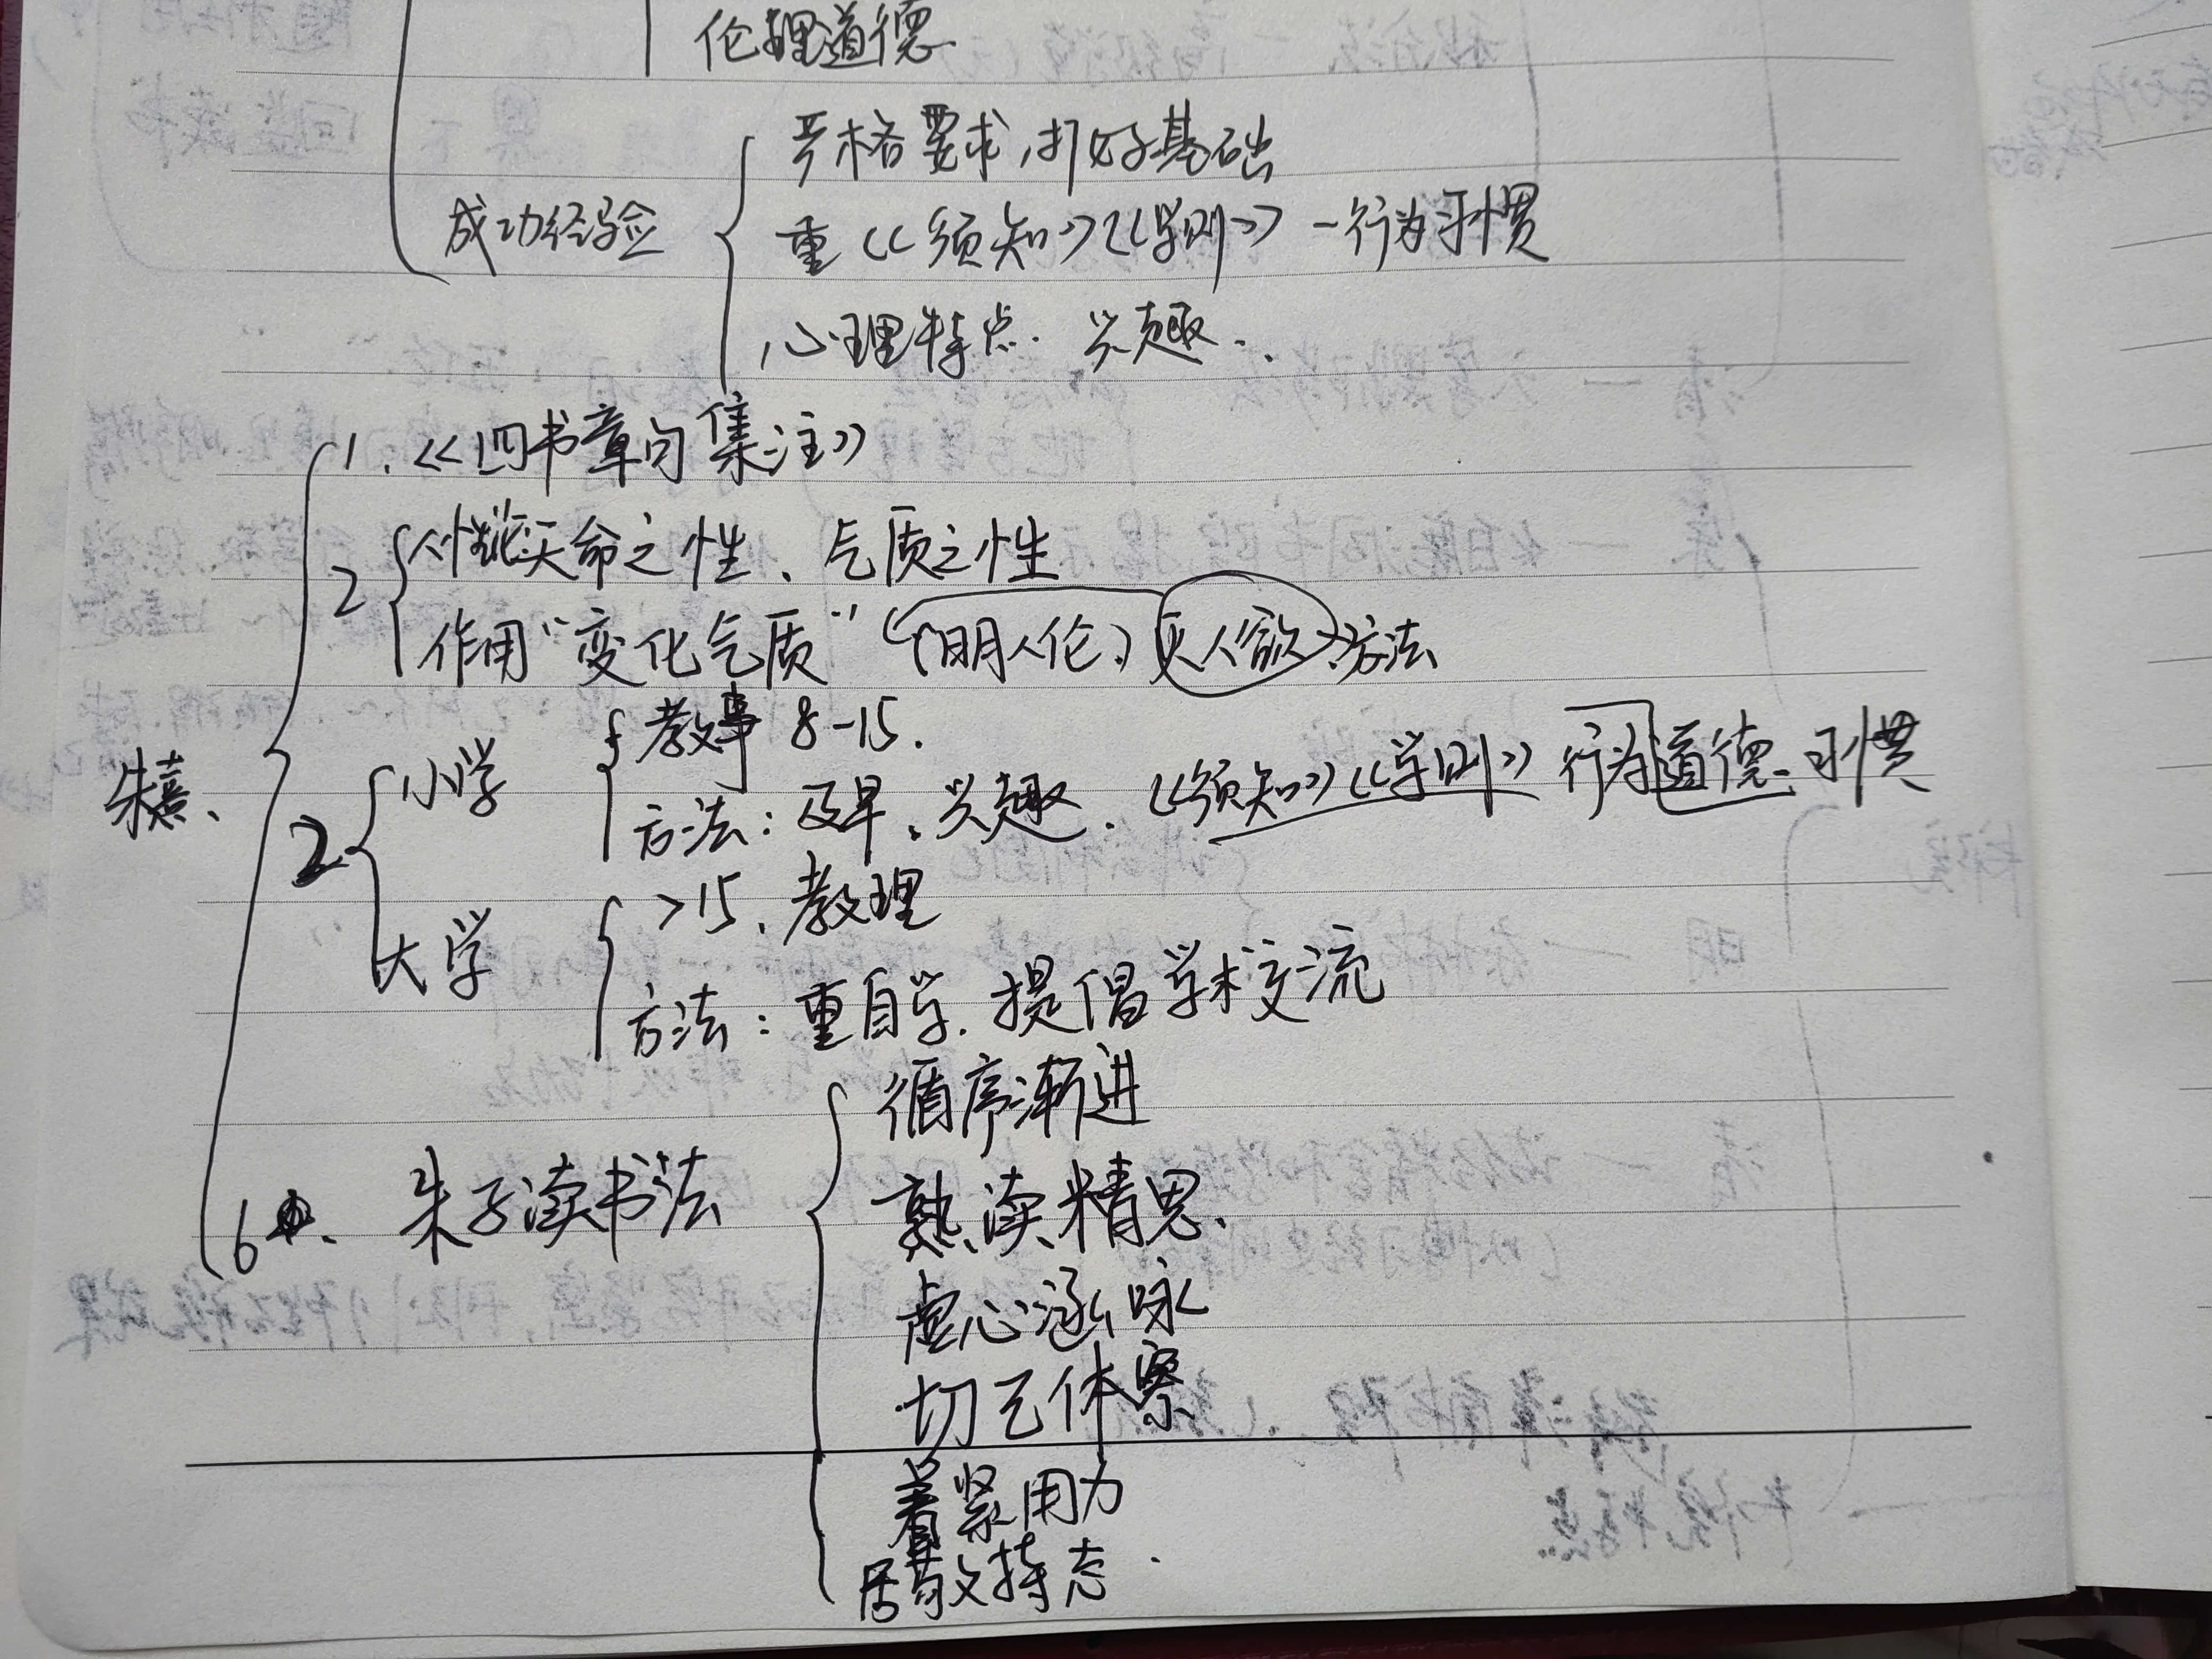 伦理道德
严格要求,打好基础
成功经验
重《须知》《学则》-行为习惯
心理特点. 兴趣..
1.《四书章句集注》
2 天命之性、气质之性
作用“变化气质”(明人伦、灭人欲)方法
朱熹、
2
小学
教事 8-15.
方法:及早、兴趣.《须知》《学则》行为道德、习惯
大学
>15、教理
方法:重自学.提倡学术交流
6 朱子读书法
循序渐进
熟读精思、
虚心涵咏
切己体察
着紧用力
居敬持志.